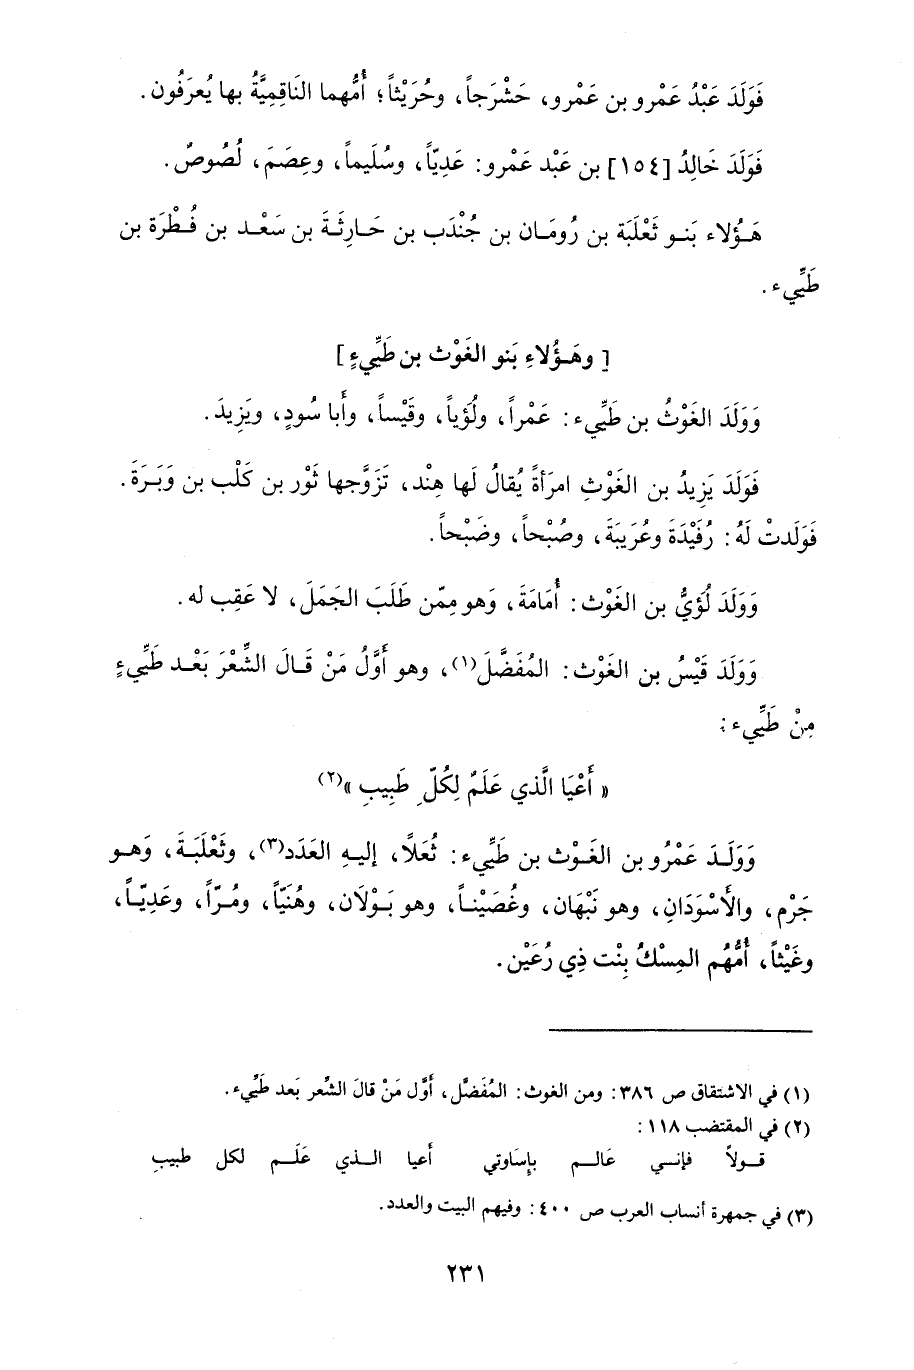 فَوَلَدَ عَبْدُ عَمْرو بن عَمْرو، حَشْرَجاً، وحُرَيْثاً؛ أُمُّهما النَاقِمِيَّةُ بها يُعرَفُون.
فَوَلَدَ خَالِدُ [١٥٤] بن عَبْد عَمْرو: عَدِيّاً، وسُلَيماً، وعِصَمَ، لُصُوصٌ.
هَـؤُلاء بَنـو ثَعْلَبَة بن رُومَـان بن جُنْدَب بن حَـارِثَـةَ بن سَعْـد بن فُـطْرَة بن
طَيِّيء.
[وهَـؤُلاءِ بَنو الغَوْث بن طَيِّيءٍ]
وَوَلَدَ الغَوْثُ بن طَيِّيء: عَمْراً، ولُؤياً، وقَيْساً، وأَبا سُودٍ، ويَزِيدَ.
فَوَلَدَ يَزِيدُ بن الغَوْثِ امرَأةً يُقالُ لَها هِنْد، تَزَوَّجها ثَوْر بن كَلْب بن وَبَـرَةَ.
فَوَلَدتْ لَهُ: رُفَيْدَةَ وعُرَيبَةَ، وصُبْحاً، وضَبْحاً.
وَوَلَدَ لُؤيُّ بن الغَوْث: أُمَامَةَ، وَهو مِمّن طَلَبَ الجَمَلَ، لا عَقِب له.
وَوَلَدَ قَيْسُ بن الغَوْث: المُفَضَّلَ(١)، وهو أَوَّلُ مَنْ قَـالَ الشِّعْرَ بَعْـد طَيِّيءٍ
مِنْ طَيِّيء:
« أَعْيَا الَّذي عَلَمٌ لِكُلّ طَبِيبِ »(٢)
وَوَلَـدَ عَمْرُو بن الغَـوْث بن طَيِّيء: ثُعَلًا، إليـهِ العَدَد(٣)، وثَعْلَبَـةَ، وَهـو
جَرْم، والأَسْوَدَانِ، وهو نَبْهَان، وغُصَيْنـاً، وهو بَـوْلَان، وهُنَيّاً، ومُـرّاً، وعَدِيّـاً،
وغَيْثاً، أُمُّهُم المِسْكُ بِنْت ذِي رُعَيْن.
(١) في الاشتقاق ص ٣٨٦: ومن الغوث: المُفَضَّل، أَوَّل مَنْ قالَ الشِّعر بَعد طَيِّيء.
(٢) في المقتضب ١١٨:
قــولاً فإنــي عَالــم بإِسَاوتي أعيا الــذي عَلَــم لكل طبيبِ
(٣) في جمهرة أنساب العرب ص ٤٠٠: وفيهم البيت والعدد.
٢٣١